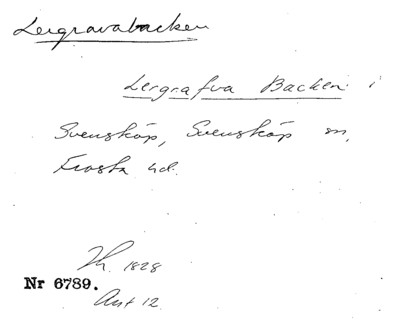 Lergravabacken
Lergrafva Backen i
Svensköp, Svensköp sn,
Frosta hd.
Th. 1828
Nr 6789.
Akt 12